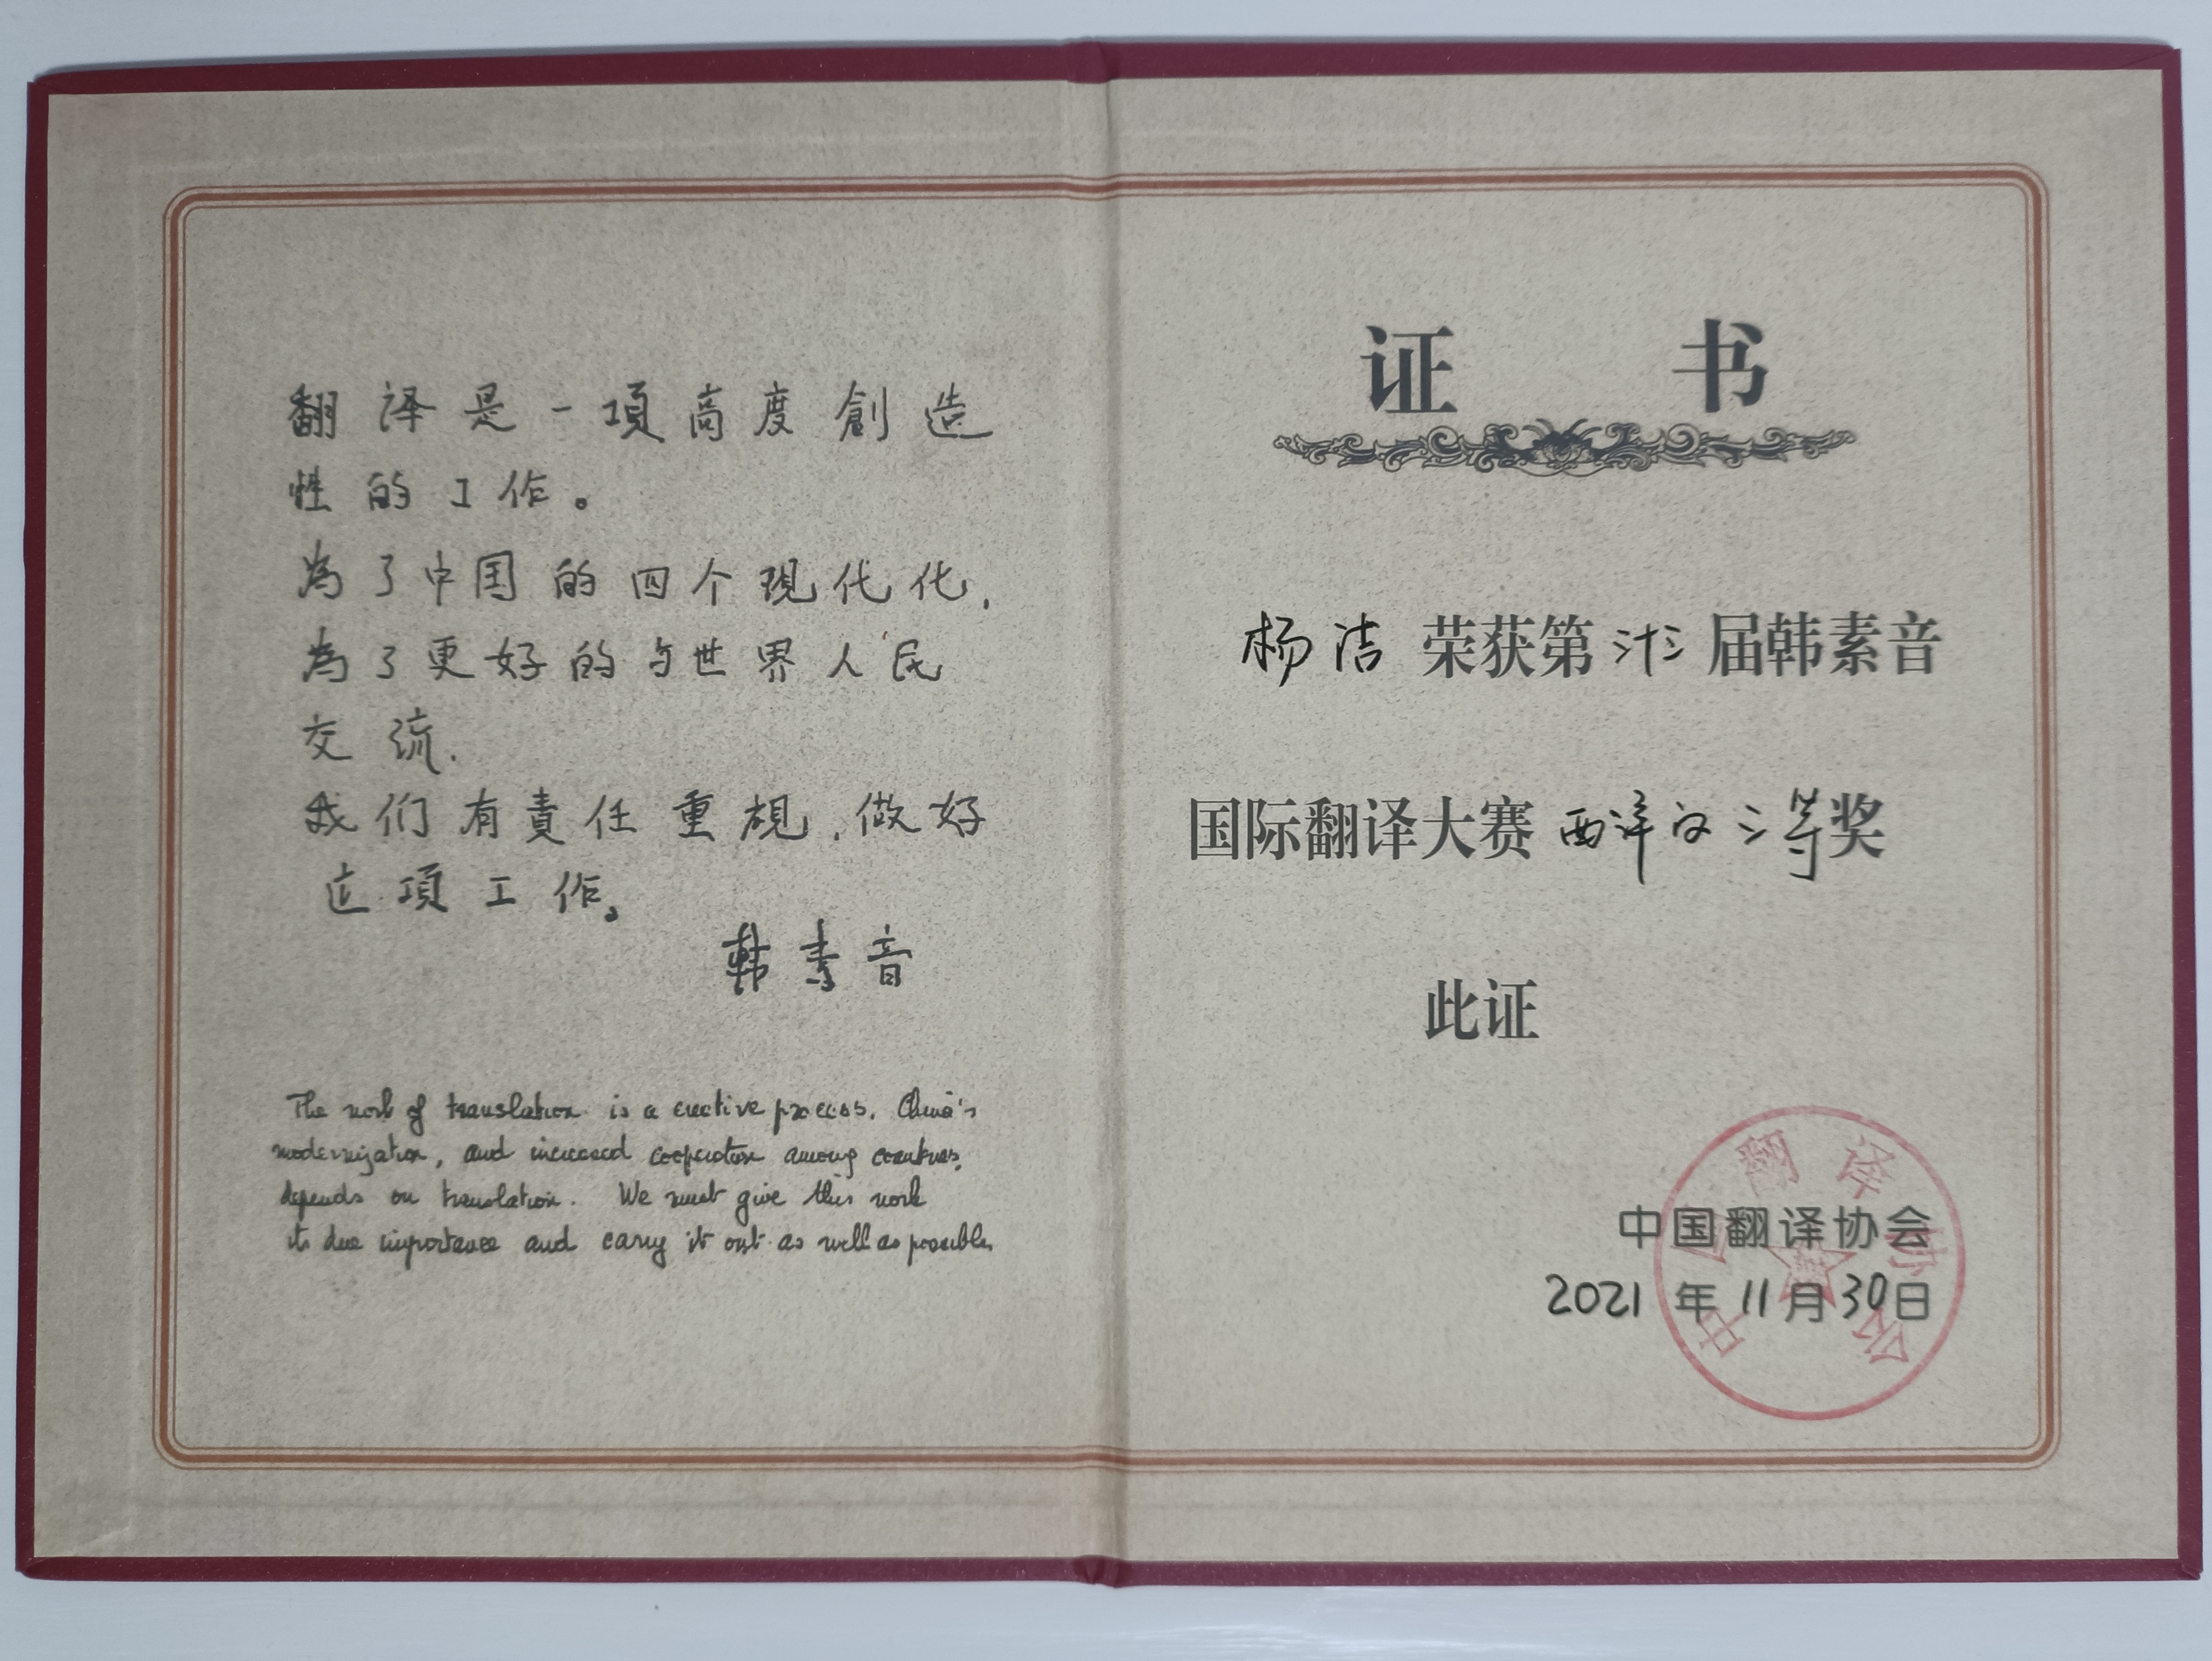 翻译是一項高度創造
性的工作。
為了中国的四个現代化,
為了更好的与世界人民
交流.
我们有責任重視,做好
这項工作。
韩素音
The work of translation is a creative process. China's
modernization, and increased cooperation among countries,
depends on translation. We must give this work
its due importance and carry it out as well as possible.
证 书
杨洁 荣获第 卅三 届韩素音
国际翻译大赛 西译汉 三等奖
此证
中国翻译协会
2021 年 11 月 30 日
中国翻译协会